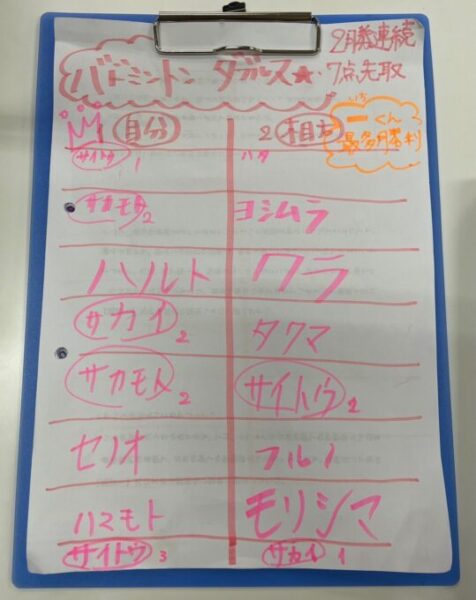 2勝連続
バドミントン ダブルス★
7点先取
自分 2 相方
いち
一くん
最多勝利
サイトウ 1 ハタ
サカモト 2 ヨシムラ
ハルト ワラ
サカイ 2 タクマ
サカモト 2 サイトウ 2
セノオ フルノ
ハマモト モリシマ
サイトウ 3 サカイ 1